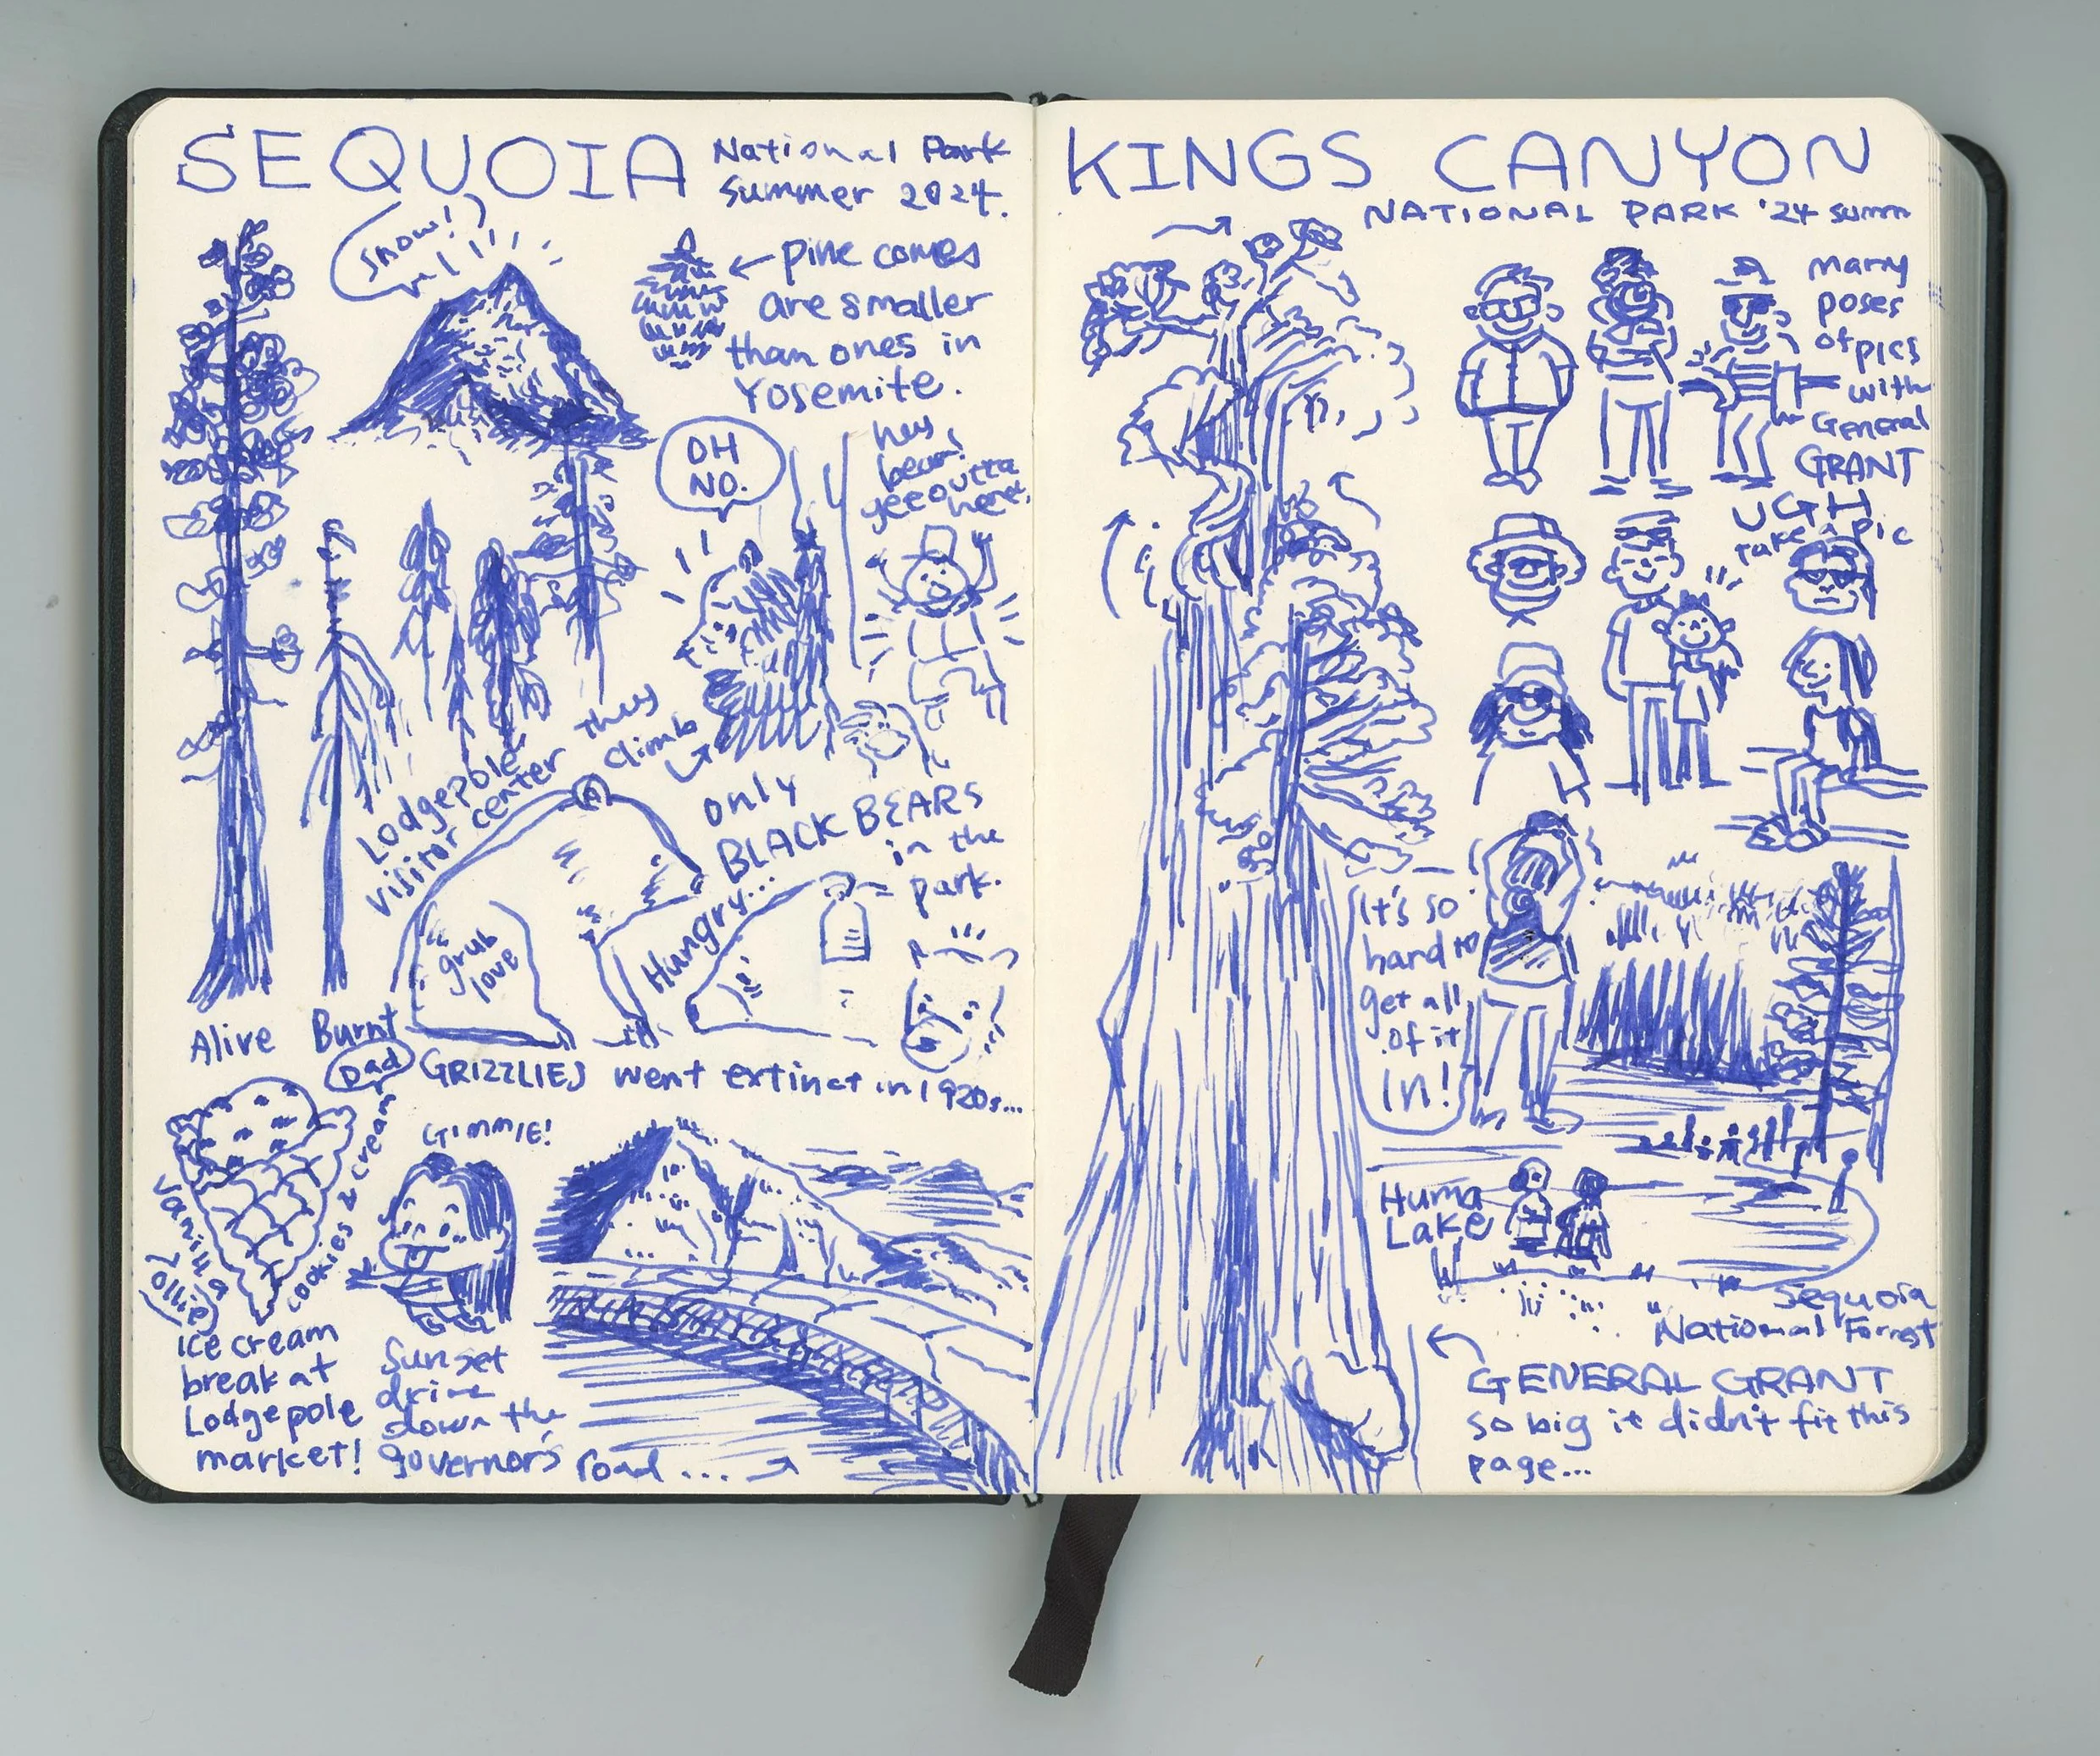 SEQUOIA
National Park
Summer 2024.
Snow!
pine comes
are smaller
than ones in
Yosemite.
OH
NO.
hey
bear!
gee outta
here!
they
climb
Lodgepole
visitor center
only
BLACK BEARS
in the
park.
Hungry...
grub
love
Alive
Burnt
GRIZZLIES went extinct in 1920s...
Dad
GIMMIE!
vanilla
cookies & cream
Ollie
Ice cream
break at
Lodgepole
market!
Sunset
drive
down the
governors road...
KINGS CANYON
NATIONAL PARK '24 summ
many
poses
of pics
with
General
GRANT
UGH
take a pic
It's so
hard to
get all
of it
in!
Huma
Lake
Sequoia
National Forrest
GENERAL GRANT
so big it didn't fit this
page...